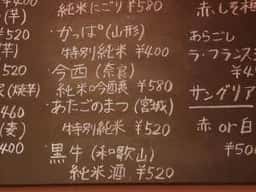 純米にごり ¥580
・かっぱ(山形)
特別純米 ¥400
・今西(奈良)
純米吟醸 ¥580
・あたごのまつ(宮城)
特別純米 ¥520
・黒牛(和歌山)
純米酒 ¥520
(芋)
¥520
(芋)
520
(焼芋)
460
(麦)
400
赤、しそ梅
あらごし
ラ・フランス
¥4
サングリア
赤 or 白
¥50